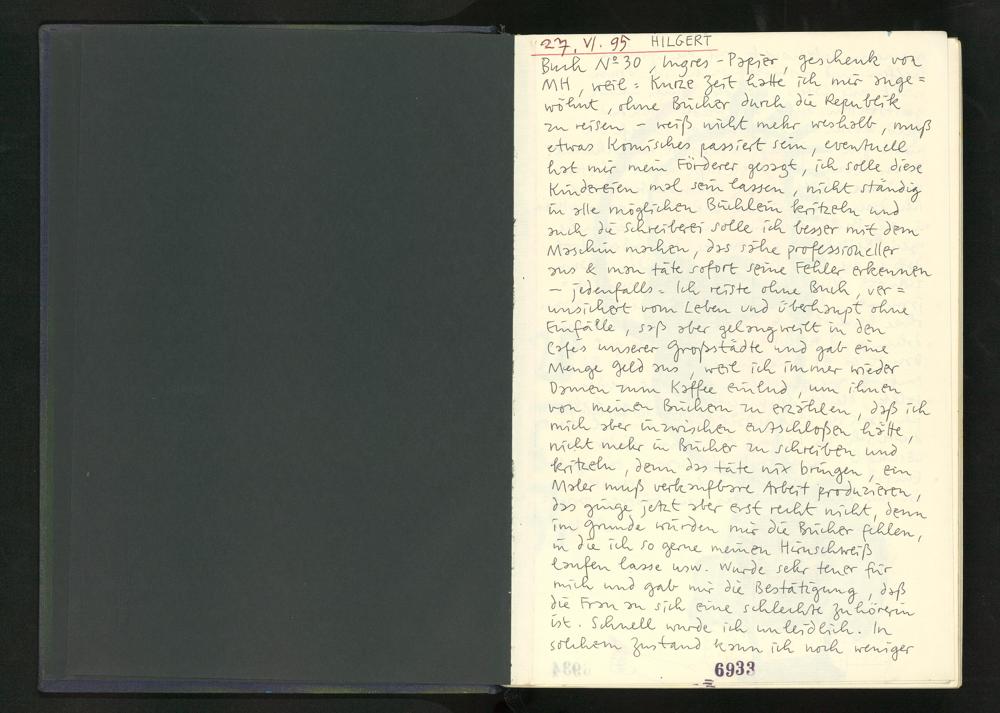 27. VI. 95 HILGERT
Buch Nº 30, Ingres-Papier, geschenk von
MH, weil: Kurze Zeit hatte ich mir ange=
wöhnt, ohne Bücher durch die Republik
zu reisen – weiß nicht mehr weshalb, muß
etwas Komisches passiert sein, eventuell
hat mir mein Förderer gesagt, ich solle diese
Kindereien mal sein lassen, nicht ständig
in alle möglichen Büchlein kritzeln und
auch die Schreiberei solle ich besser mit dem
Maschin machen, das sähe professioneller
aus & man täte sofort seine Fehler erkennen
– jedenfalls: Ich reiste ohne Buch, ver=
unsichert vom Leben und überhaupt ohne
Einfälle, saß aber gelangweilt in den
Cafés unserer Großstädte und gab eine
Menge Geld aus, weil ich immer wieder
Damen zum Kaffee einlud, um ihnen
von meinen Büchern zu erzählen, daß ich
mich aber inzwischen entschloßen hätte,
nicht mehr in Bücher zu schreiben und
kritzeln, denn das täte nix bringen, ein
Maler muß verkaufbare Arbeit produzieren,
das ginge jetzt aber erst recht nicht, denn
im Grunde würden mir die Bücher fehlen,
in die ich so gerne meinen Hirnschweiß
laufen lasse usw. Wurde sehr teuer für
mich und gab mir die Bestätigung, daß
die Frau an sich eine schlechte Zuhörerin
ist. Schnell wurde ich unleidlich. In
solchem Zustand kann ich noch weniger
6933